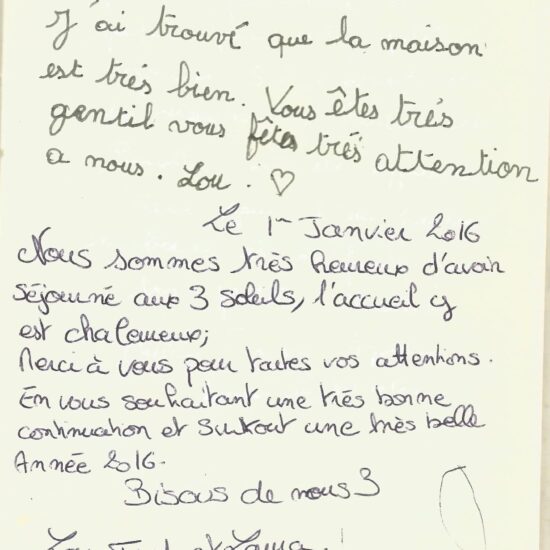 J'ai trouvé que la maison
est trés bien. Vous êtes trés
gentil vous fêtes trés attention
a nous. Lou. ♡
Le 1er Janvier 2016
Nous sommes très heureux d'avoir
séjourné aux 3 soleils, l'accueil y
est chaleureux;
Merci à vous pour toutes vos attentions.
En vous souhaitant une très bonne
continuation et surtout une très belle
Année 2016.
Bisous de nous 3
Laura !